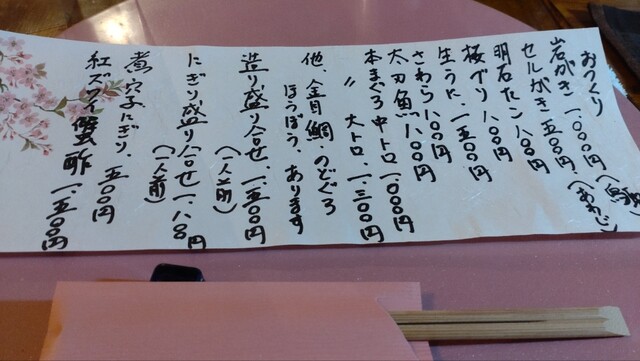 おつくり
岩がき 一、〇〇〇円(鳥取
セルがき 五〇〇円、(あわじ)
明石たこ 八〇〇円
桜ダリ 八〇〇円
生うに、一、五〇〇円
さわら 八〇〇円
太刀魚 八〇〇円
本まぐろ 中トロ 一、〇〇〇円
〃 大トロ、一、三〇〇円
他、金目鯛 のどぐろ
ほうぼう、あります
造り盛り合せ、一、五〇〇円
(一人前)
にぎり盛り合せ 一、八〇円
(一人前)
煮穴子にぎり、五〇〇円
紅ズワイ蟹酢 一、五〇〇円